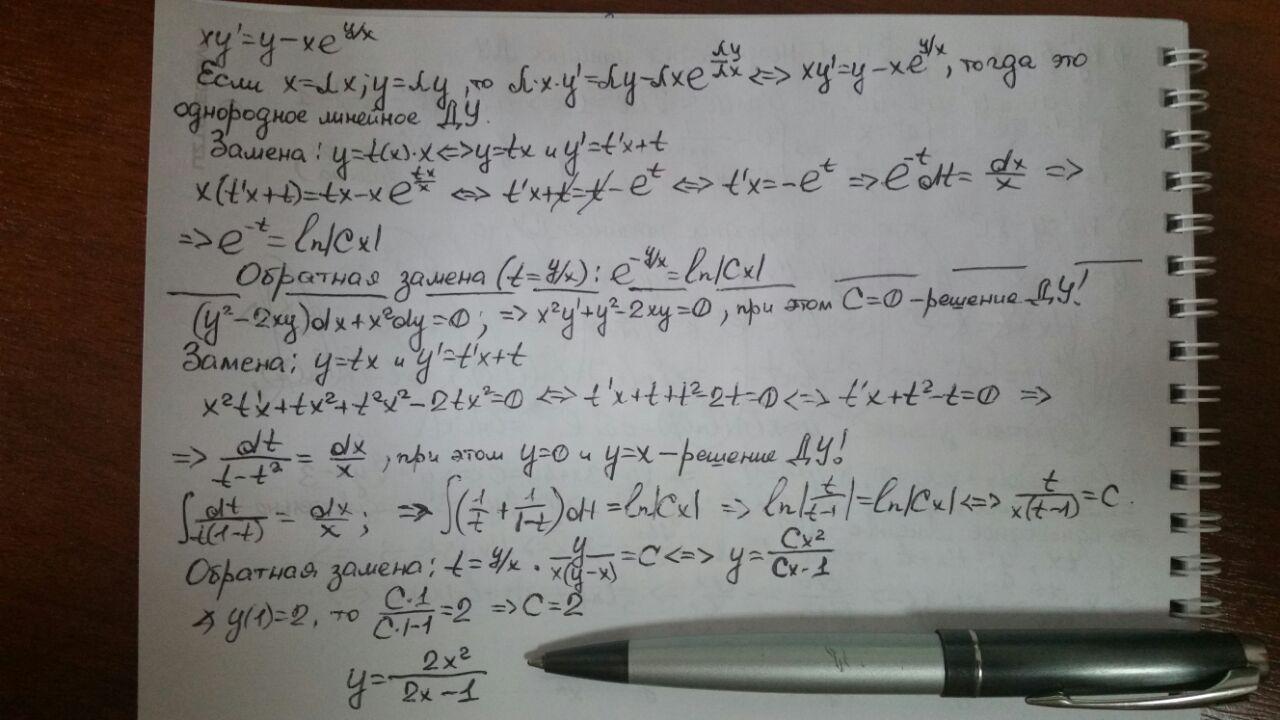 xy'=y-xe^{y/x}
Если x=λx; y=λy, то λ·x·y'=λy-λxe^{λy/λx} <=> xy'=y-xe^{y/x}, тогда это
однородное линейное ДУ.
Замена: y=t(x)·x <=> y=tx и y'=t'x+t
x(t'x+t)=tx-xe^{tx/x} <=> t'x+t=t-e^t <=> t'x=-e^t => e^{-t}dt=dx/x =>
=> e^{-t}=ln|Cx|
Обратная замена (t=y/x): e^{-y/x}=ln|Cx|
(y²-2xy)dx+x²dy=0; => x²y'+y²-2xy=0, при этом C=0-решение ДУ!
Замена: y=tx и y'=t'x+t
x²t'x+tx²+t²x²-2tx²=0 <=> t'x+t+t²-2t=0 <=> t'x+t²-t=0 =>
=> dt/(t-t²)=dx/x, при этом y=0 и y=x-решение ДУ!
∫dt/(t(1-t))=dx/x; => ∫(1/t+1/(1-t))dt=ln|Cx| => ln|t/(t-1)|=ln|Cx| <=> t/(x(t-1))=C.
Обратная замена: t=y/x · y/(x(y-x))=C <=> y=Cx²/(Cx-1)
y(1)=2, то C·1/(C·1-1)=2 => C=2
y=2x²/(2x-1)